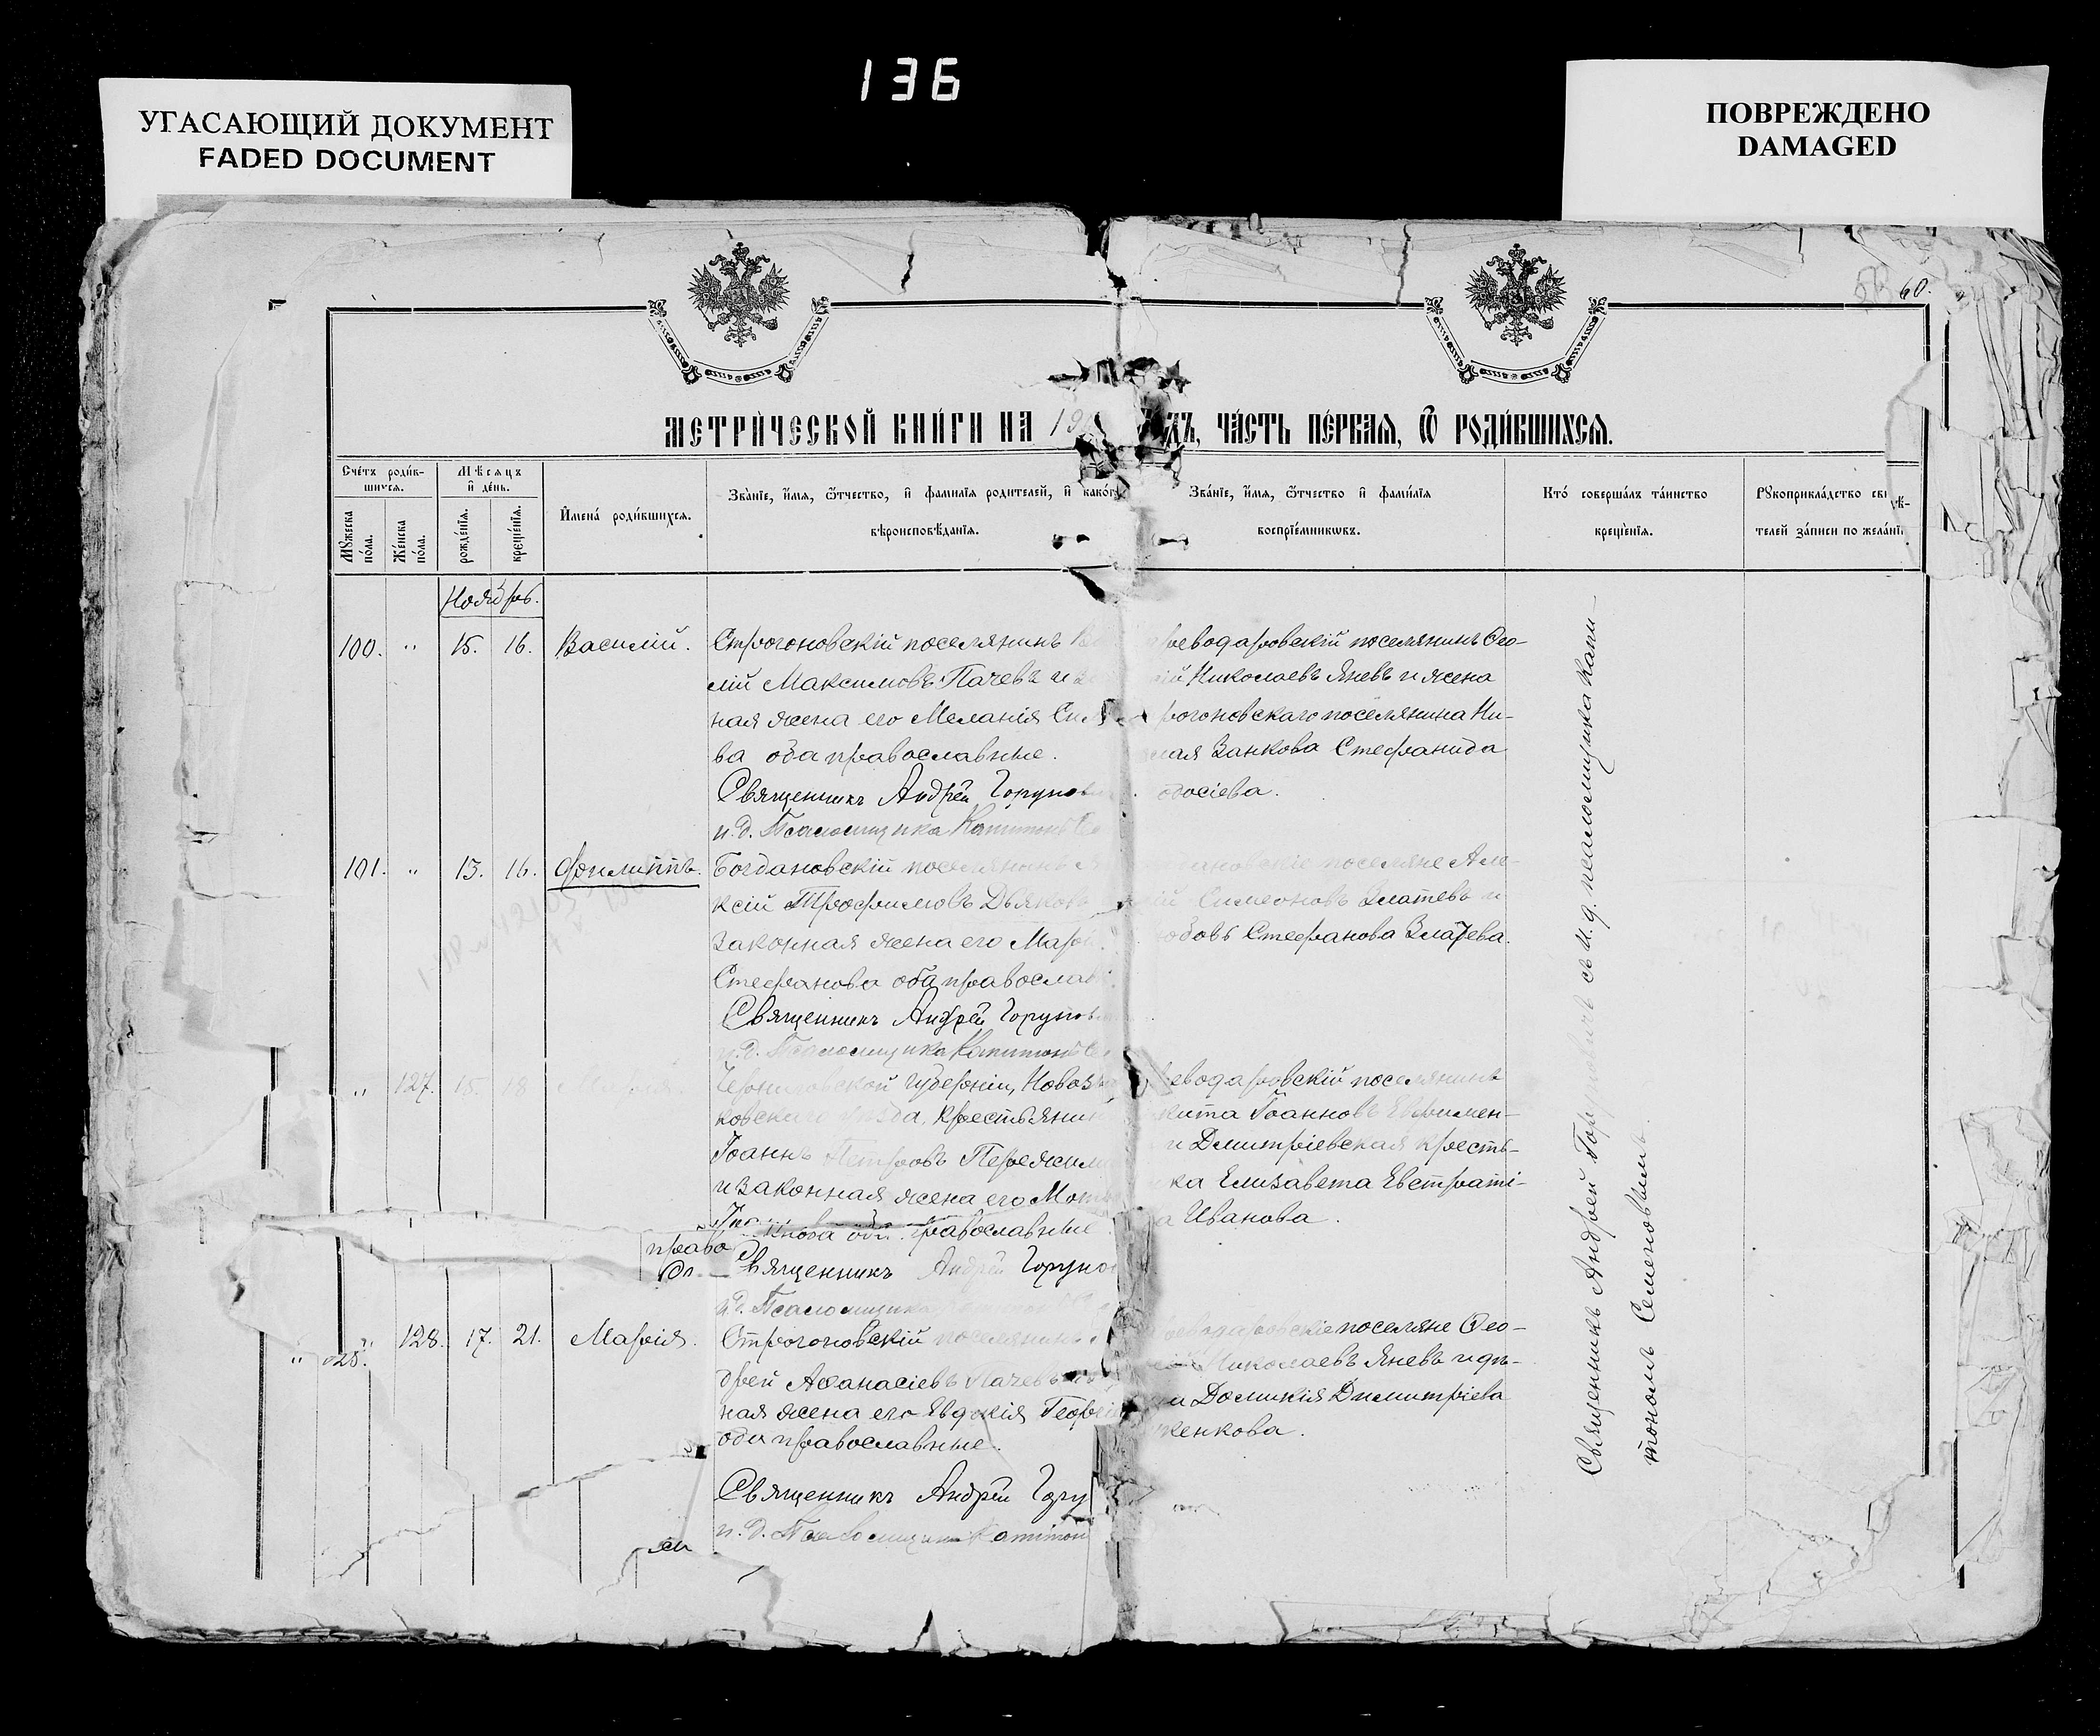 136
УГАСАЮЩИЙ ДОКУМЕНТ
FADED DOCUMENT
ПОВРЕЖДЕНО
DAMAGED
60.
МЕТРИ́ЧЕСКОЙ КНИ́ГИ НА 19
ДЪ, ЧА́СТЬ ПЕ́РВАЯ, Ѿ РОДИ́ВШИХСЯ.
Сче́тъ роди́в-
шихся.
Мѣсяцъ
и де́нь.
Мꙋжеска по́ла.
Же́нска по́ла.
рожде́нїя.
креще́нїя.
Имена́ роди́вшихся.
Зва́нїе, и́мя, ѻ́тчество, и фами́лїя родителей, и како́г
вѣроисповѣ́данїя.
Зва́нїе, и́мя, ѻ́тчество и фами́лїя
воспрїе́мникѡвъ.
Кто́ соверша́лъ та́инство
креще́нїя.
Рꙋкоприкла́дство сви
ѣ-
телей за́писи по жела́нї
Ноябрь.
100. " 15. 16. Василій.
Строгоновскій поселянинъ
лій Максимовъ Пачевъ и
ная жена его Меланія
ва оба православные.
Священникъ Андрей Горунов
и.д. Псаломщика Капитонъ
реводаровскій поселянинъ Ѳео-
ій Николаевъ Яневъ и жена
рогоновскаго поселянина Ни-
лая Занкова Стефанида
одосіева.
101. " 13. 16. Филиппъ.
Богдановскій поселянинъ
ксій Трофимовъ Дьяковъ
законная жена его Марѳ
Стефанова оба православ
Священникъ Андрей Горунов
и.д. Псаломщика Капитонъ
дановскіе поселяне Але-
ій Симеоновъ Златевъ и
юбовь Стефанова Златева.
" 127. 15. 18
Черниговской губерніи, Новозы
ковскаго уѣзда, крестьянин
Іоаннъ Петровъ Пережи
и законная жена его
оба православные
Священникъ Андрей Горуно
и.д. Псаломщика
еводаровскій поселянинъ
кита Іоанновъ Ефимен-
и Дмитріевская кресть-
ка Елизавета Евстраті-
а Иванова.
право
" 128. 17. 21. Марія.
" 128.
Строгоновскій поселянинъ
дрей Аѳанасіевъ Пачевъ
ная жена его Евдокія Георгі
оба православные.
Священникъ Андрей Гору
и.д. Псаломщик Капитон
реводаровскіе поселяне Ѳео-
ій Николаевъ Яневъ и дѣ-
и Домникія Димитріева
женкова.
Священникъ Андрей Горуновичъ съ и.д. псаломщика Капи-
тономъ Семеновымъ.